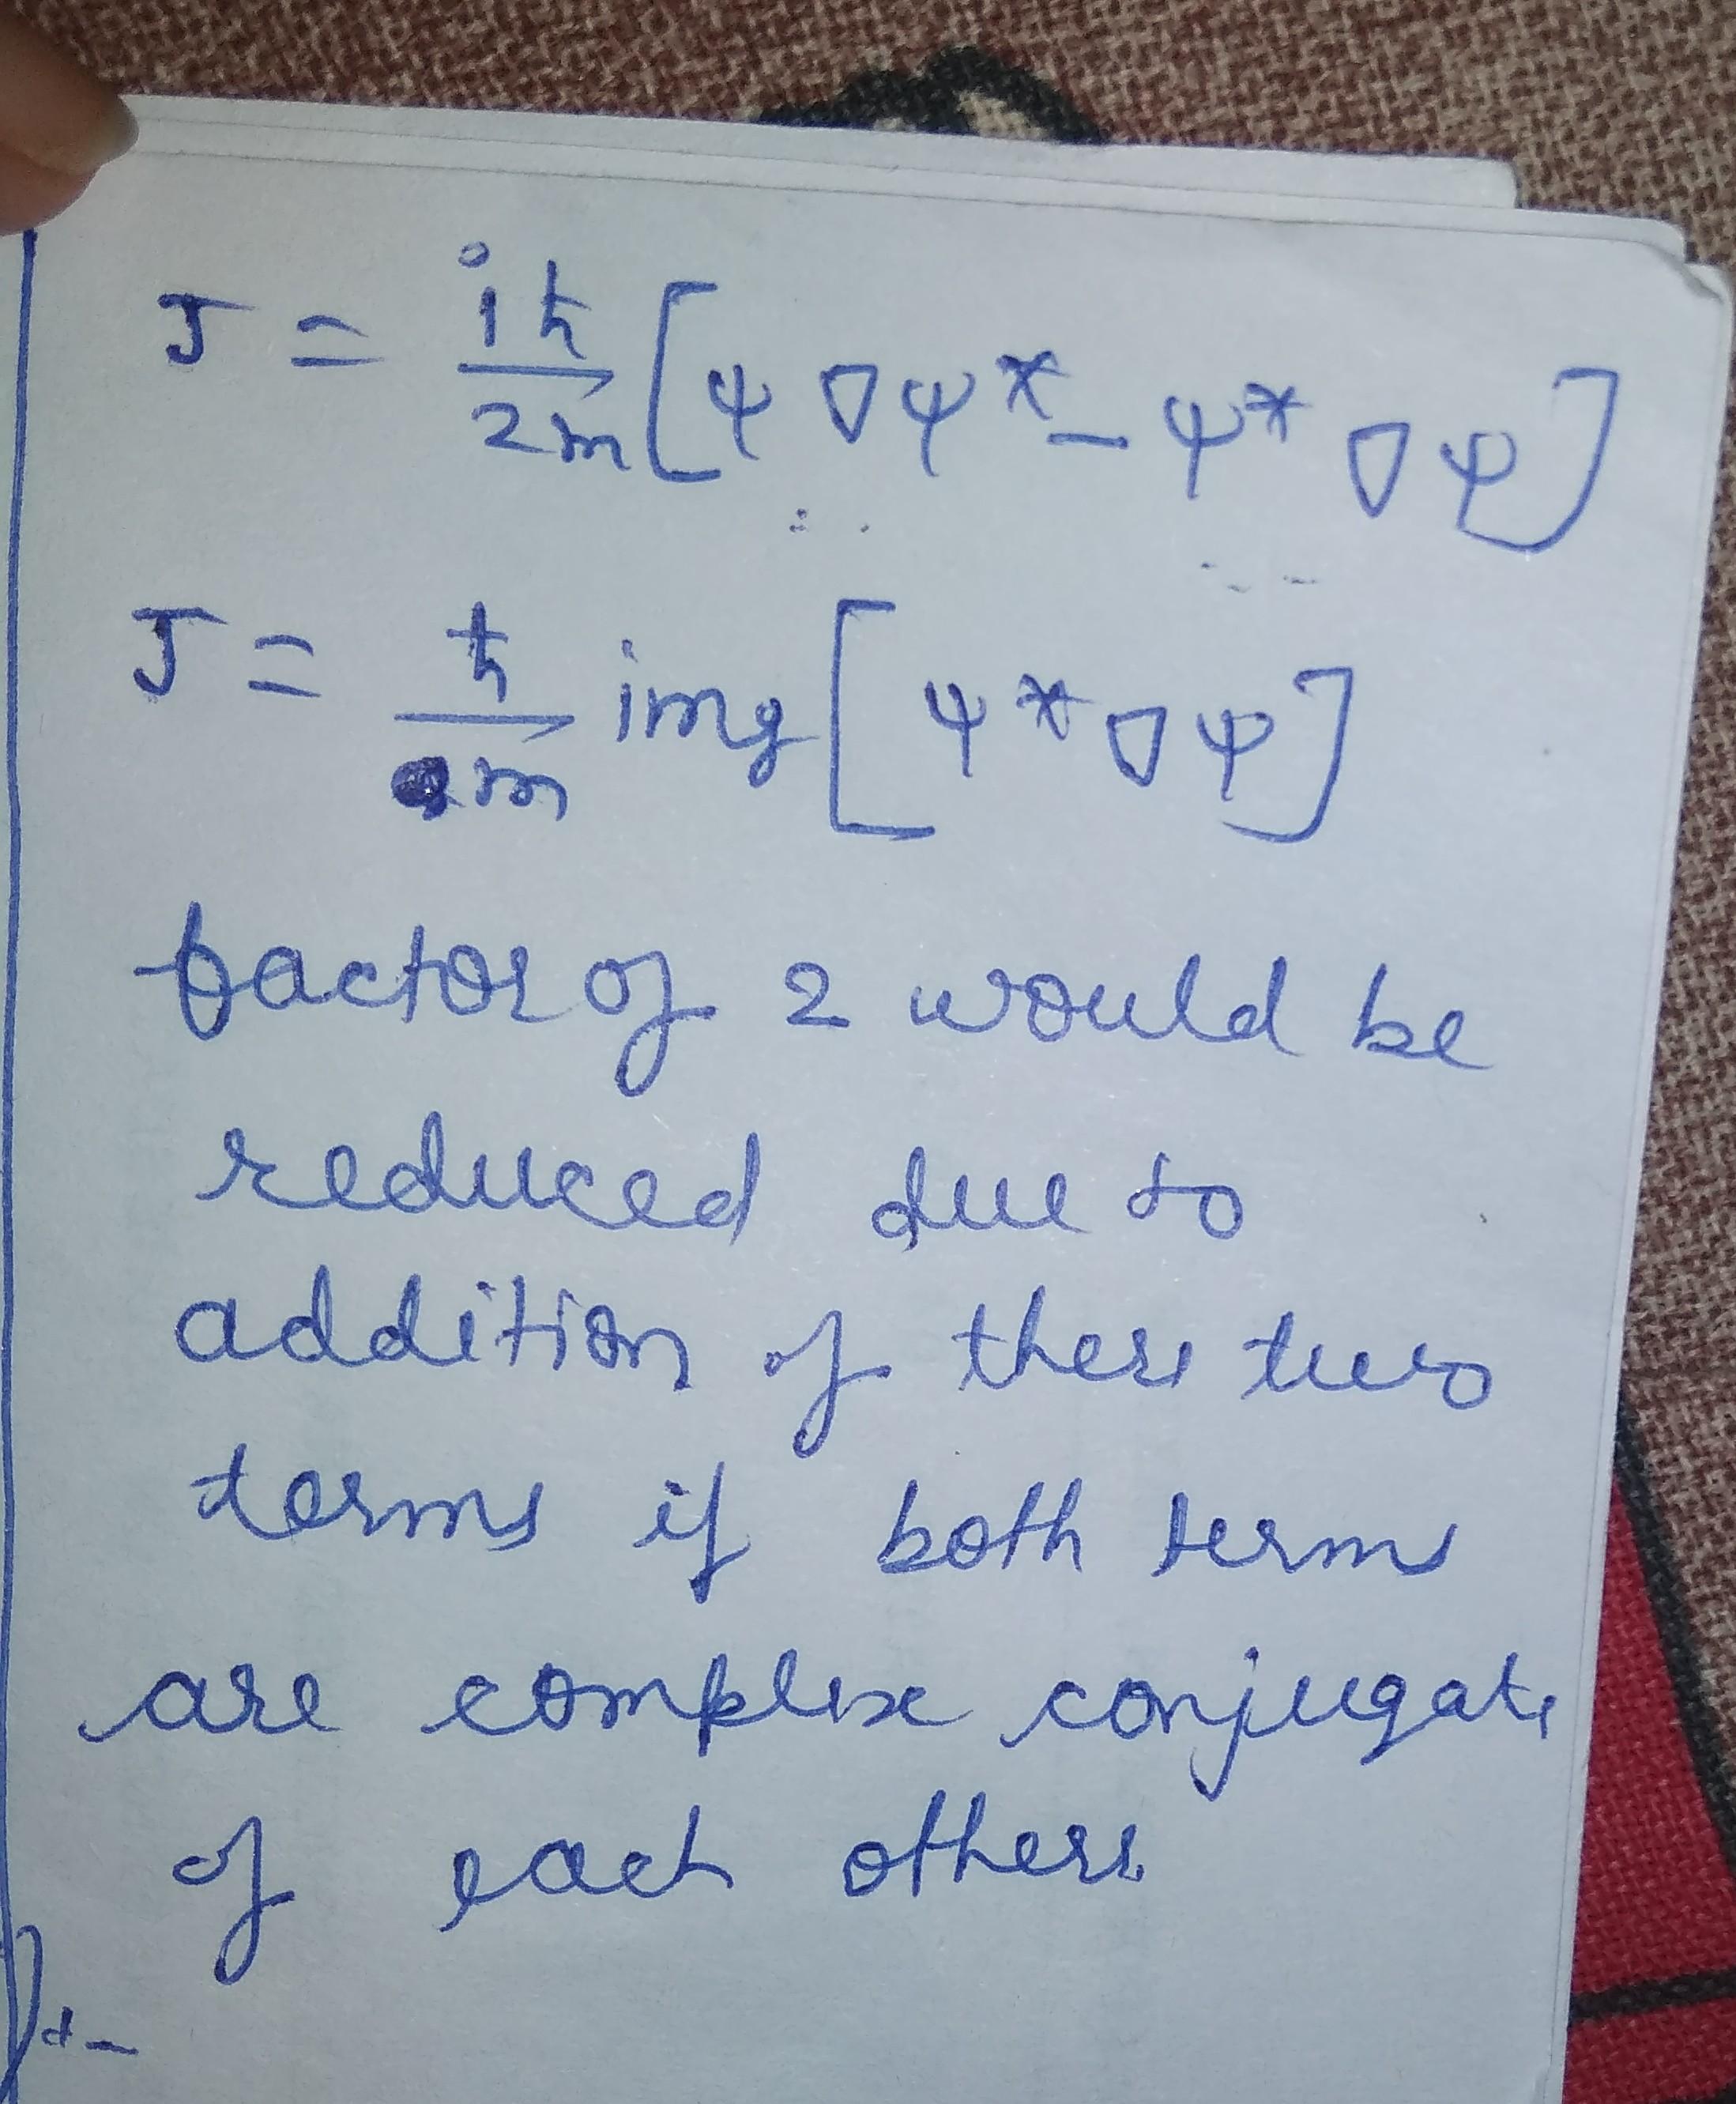 J = iħ/2m [ψ ∇ψ* - ψ* ∇ψ]
J = ħ/m img [ψ* ∇ψ]
factor of 2 would be
reduced due to
addition of these two
terms if both terms
are complex conjugate
of each others